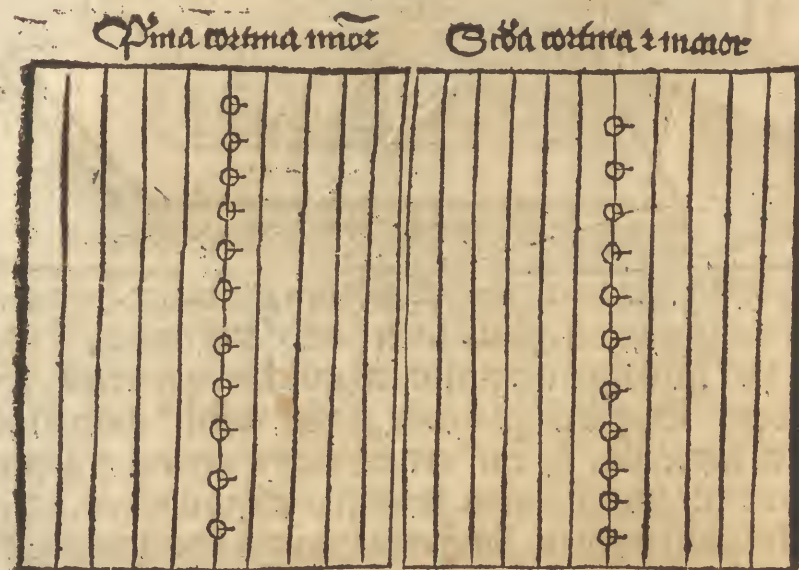 P̃ma cortina mīor
Scd̃a cortina ⁊ maior